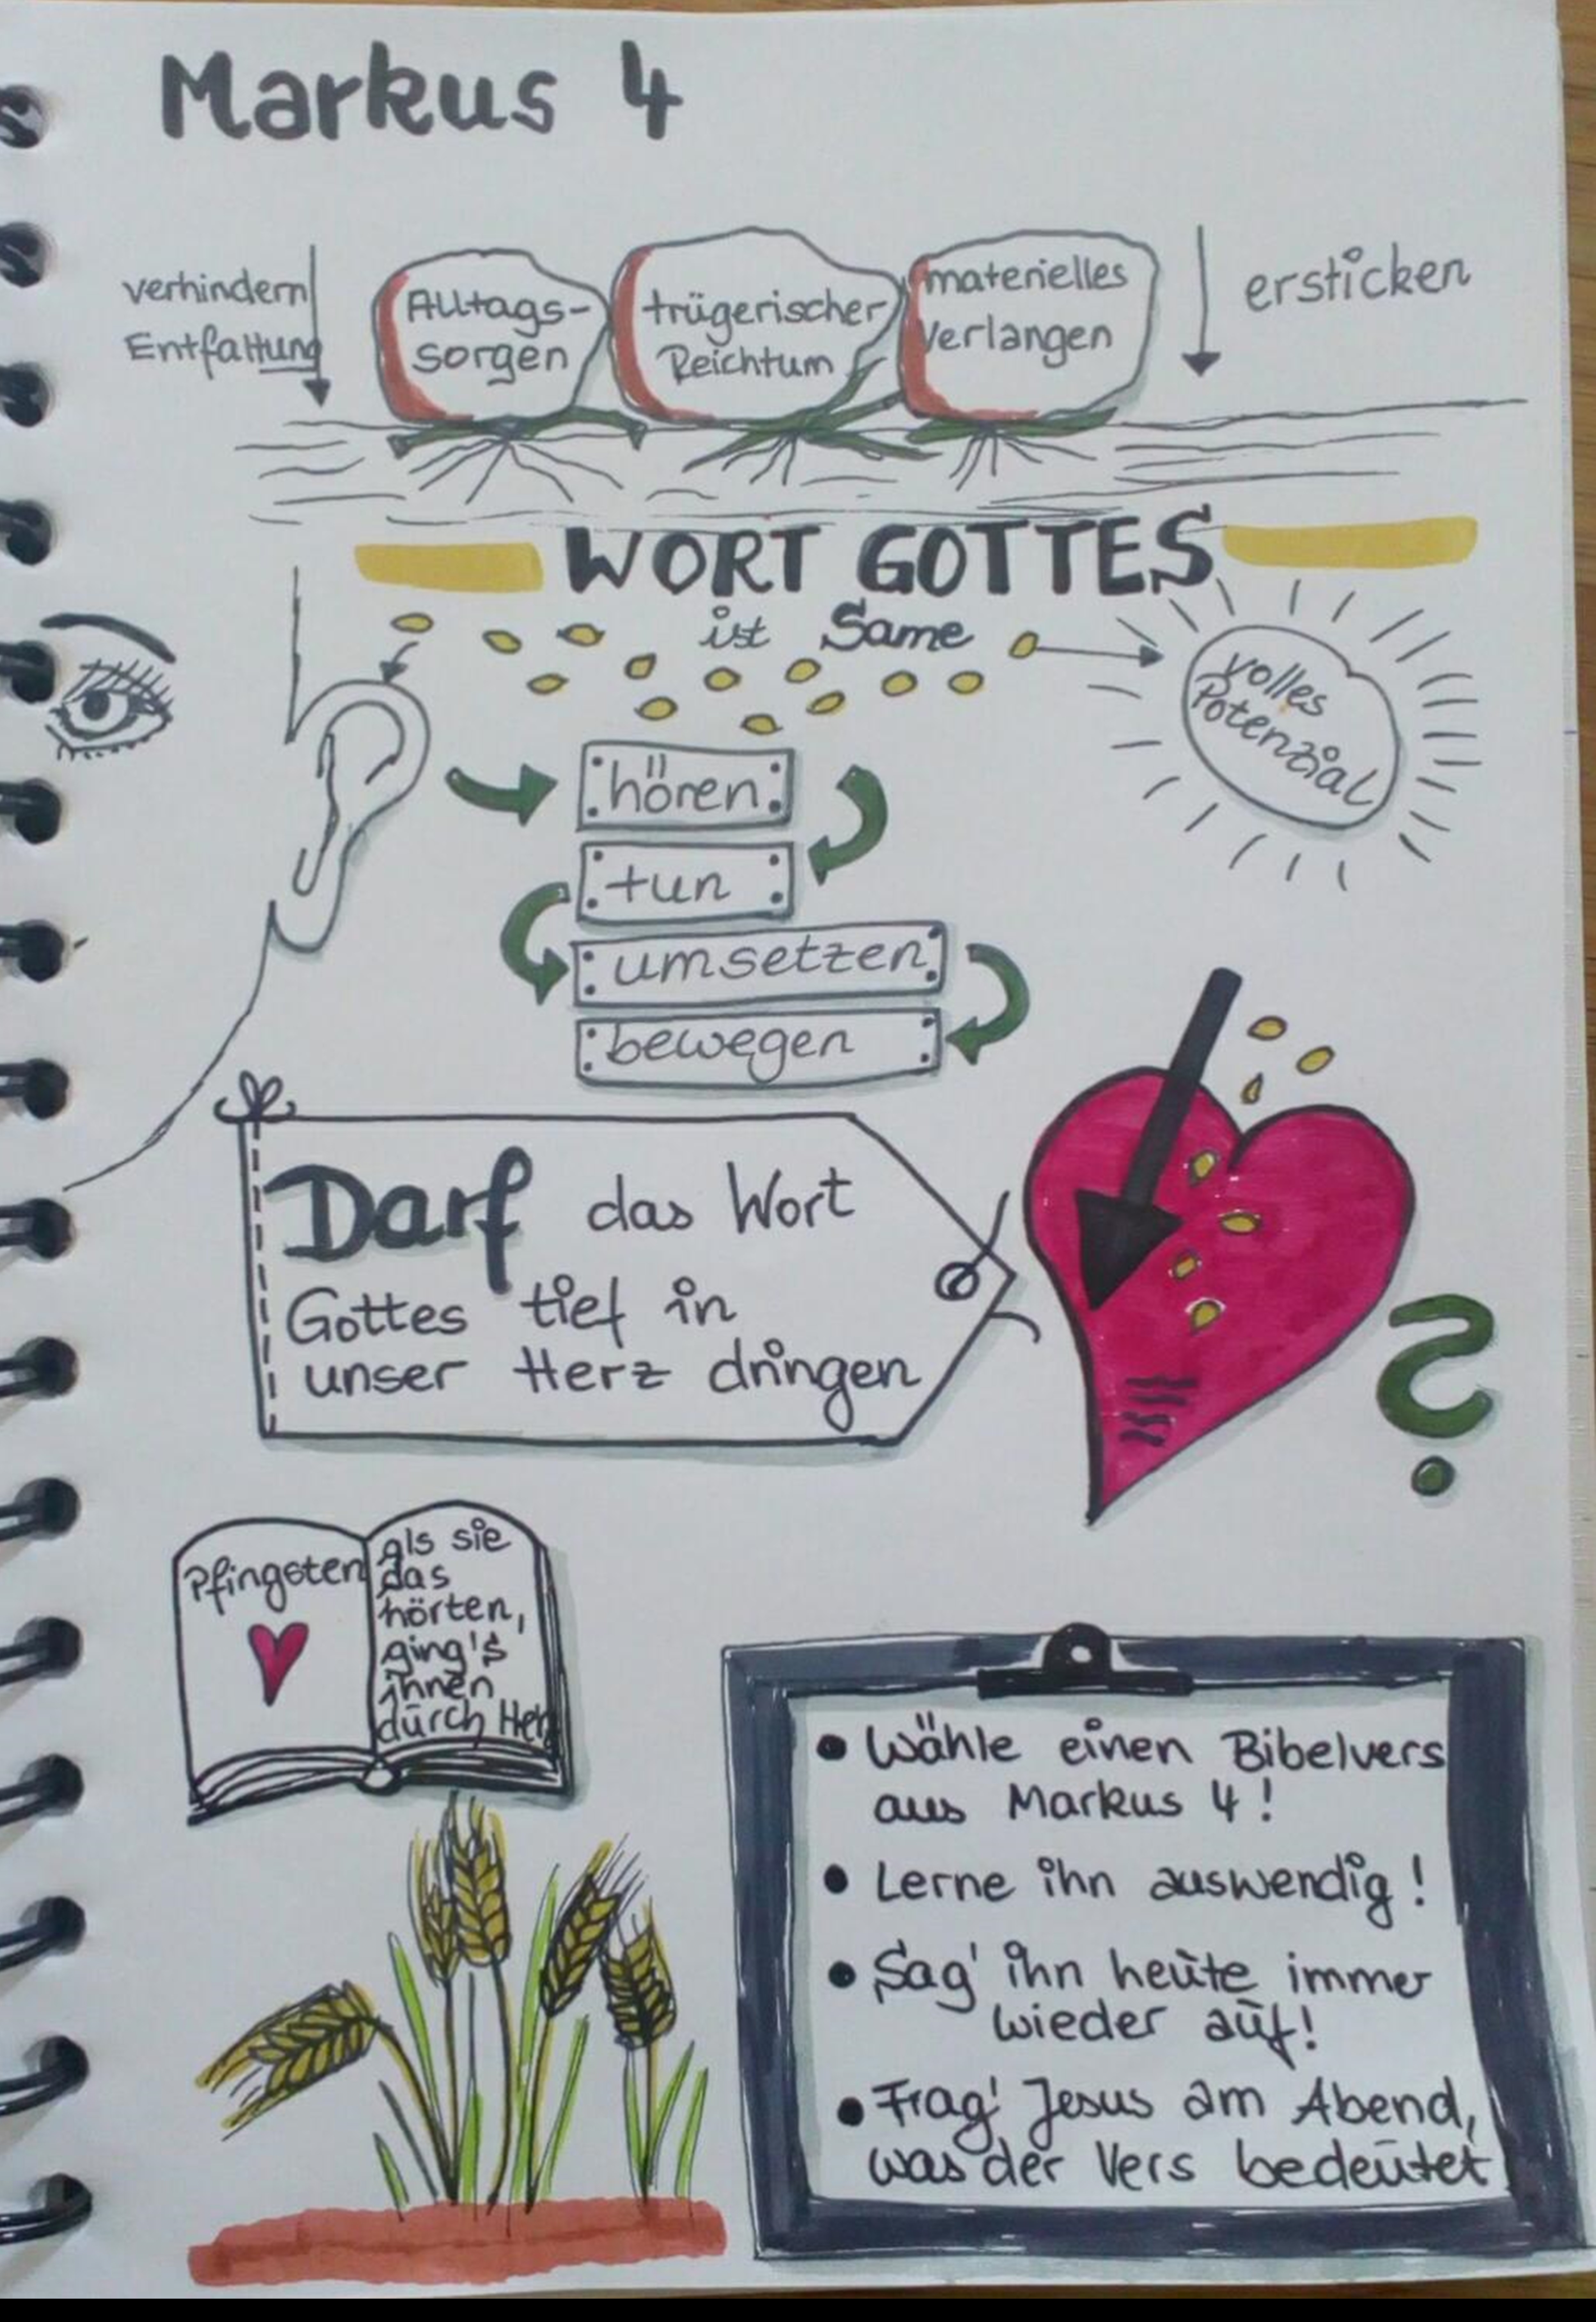 Markus 4
verhindern
Entfaltung
Alltags-
sorgen
trügerischer
Reichtum
materielles
Verlangen
ersticken
WORT GOTTES
ist Same
volles
Potenzial
hören
tun
umsetzen
bewegen
Darf das Wort
Gottes tief in
unser Herz dringen
?
Pfingsten
als sie
das
hörten,
ging's
ihnen
durch Herz
• Wähle einen Bibelvers
aus Markus 4!
• Lerne ihn auswendig!
• Sag' ihn heute immer
wieder auf!
• Frag' Jesus am Abend,
was der Vers bedeutet